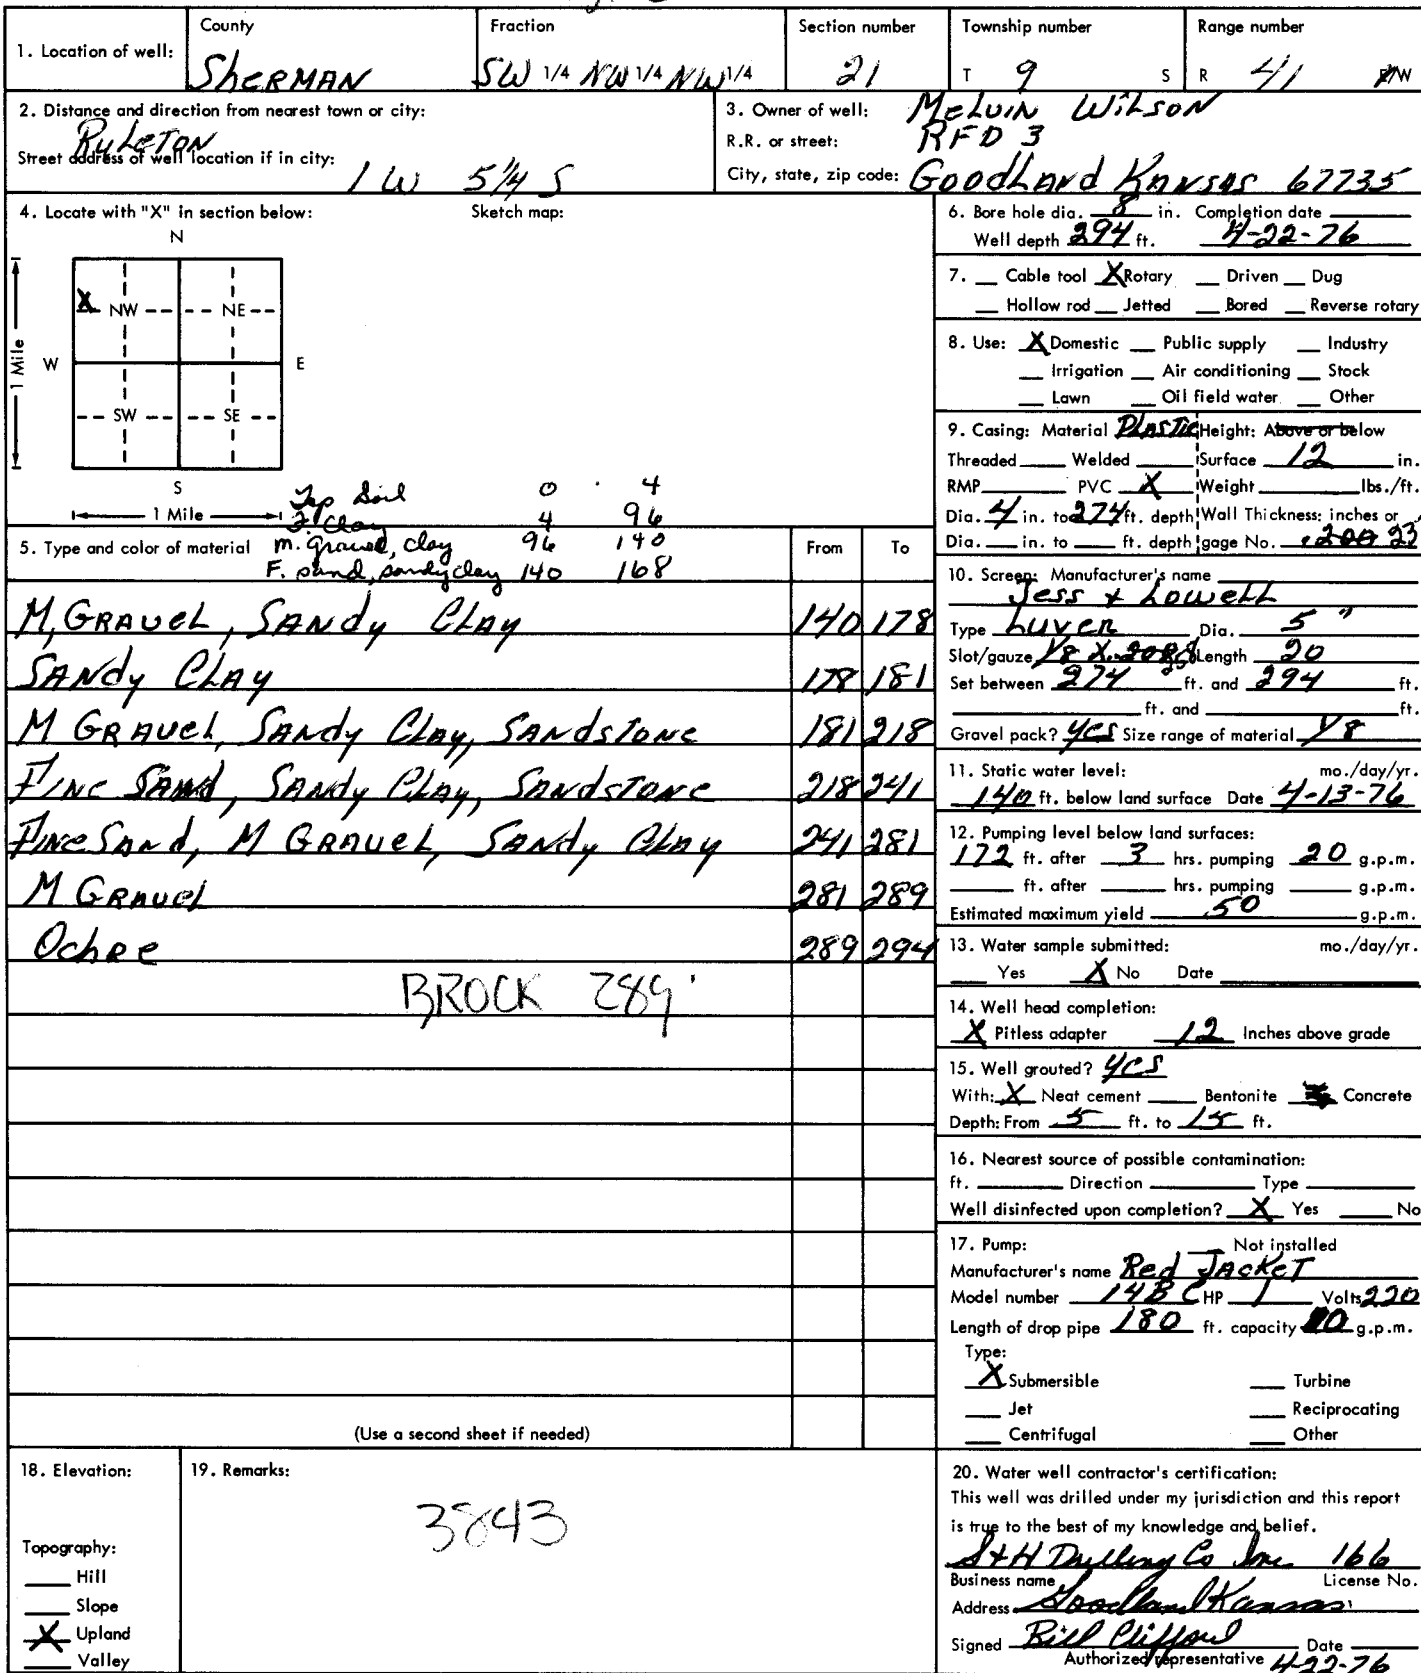 County Fraction Section number Township number Range number
1. Location of well: SHERMAN SW 1/4 NW 1/4 NW 1/4 21 T 9 S R 41 E/W
2. Distance and direction from nearest town or city: Ruleton
Street address of well location if in city: 1 W 5 1/4 S
3. Owner of well: MELVIN WILSON
R.R. or street: RFD 3
City, state, zip code: GOODLAND KANSAS 67735
4. Locate with "X" in section below: Sketch map:
N
X NW NE
W E
1 Mile
SW SE
S
1 Mile
Top Soil 0 4
Clay 4 96
5. Type and color of material From To
m. gravel, clay 96 140
F. sand, sandy clay 140 168
M, GRAVEL, SANDY CLAY 140 178
SANDY CLAY 178 181
M GRAVEL, SANDY CLAY, SANDSTONE 181 218
FINE SAND, SANDY CLAY, SANDSTONE 218 241
FINE SAND, M GRAVEL, SANDY CLAY 241 281
M GRAVEL 281 289
OCHRE 289 294
BROCK 289'
(Use a second sheet if needed)
6. Bore hole dia. 8 in. Completion date
Well depth 294 ft. 4-22-76
7. Cable tool X Rotary Driven Dug
Hollow rod Jetted Bored Reverse rotary
8. Use: X Domestic Public supply Industry
Irrigation Air conditioning Stock
Lawn Oil field water Other
9. Casing: Material PLASTIC Height: Above or below
Threaded Welded Surface 12 in.
RMP PVC X Weight lbs./ft.
Dia. 4 in. to 274 ft. depth Wall Thickness: inches or
Dia. in. to ft. depth gage No. .200 23
10. Screen: Manufacturer's name
Jess & Lowell
Type Luver Dia. 5"
Slot/gauze 1/8 X Length 20
Set between 274 ft. and 294 ft.
ft. and ft.
Gravel pack? yes Size range of material 1/8
11. Static water level: mo./day/yr.
140 ft. below land surface Date 4-13-76
12. Pumping level below land surfaces:
172 ft. after 3 hrs. pumping 20 g.p.m.
ft. after hrs. pumping g.p.m.
Estimated maximum yield 50 g.p.m.
13. Water sample submitted: mo./day/yr.
Yes X No Date
14. Well head completion:
X Pitless adapter 12 Inches above grade
15. Well grouted? yes
With: X Neat cement Bentonite Concrete
Depth: From 5 ft. to 15 ft.
16. Nearest source of possible contamination:
ft. Direction Type
Well disinfected upon completion? X Yes No
17. Pump: Not installed
Manufacturer's name Red JACKET
Model number 14BC HP 1 Volts 220
Length of drop pipe 180 ft. capacity g.p.m.
Type:
X Submersible Turbine
Jet Reciprocating
Centrifugal Other
18. Elevation:
Topography:
Hill
Slope
X Upland
Valley
19. Remarks:
3843
20. Water well contractor's certification:
This well was drilled under my jurisdiction and this report
is true to the best of my knowledge and belief.
S&H Drilling Co Inc 166
Business name License No.
Address Goodland Kansas
Signed Bill Clifford Date
Authorized representative 4-22-76